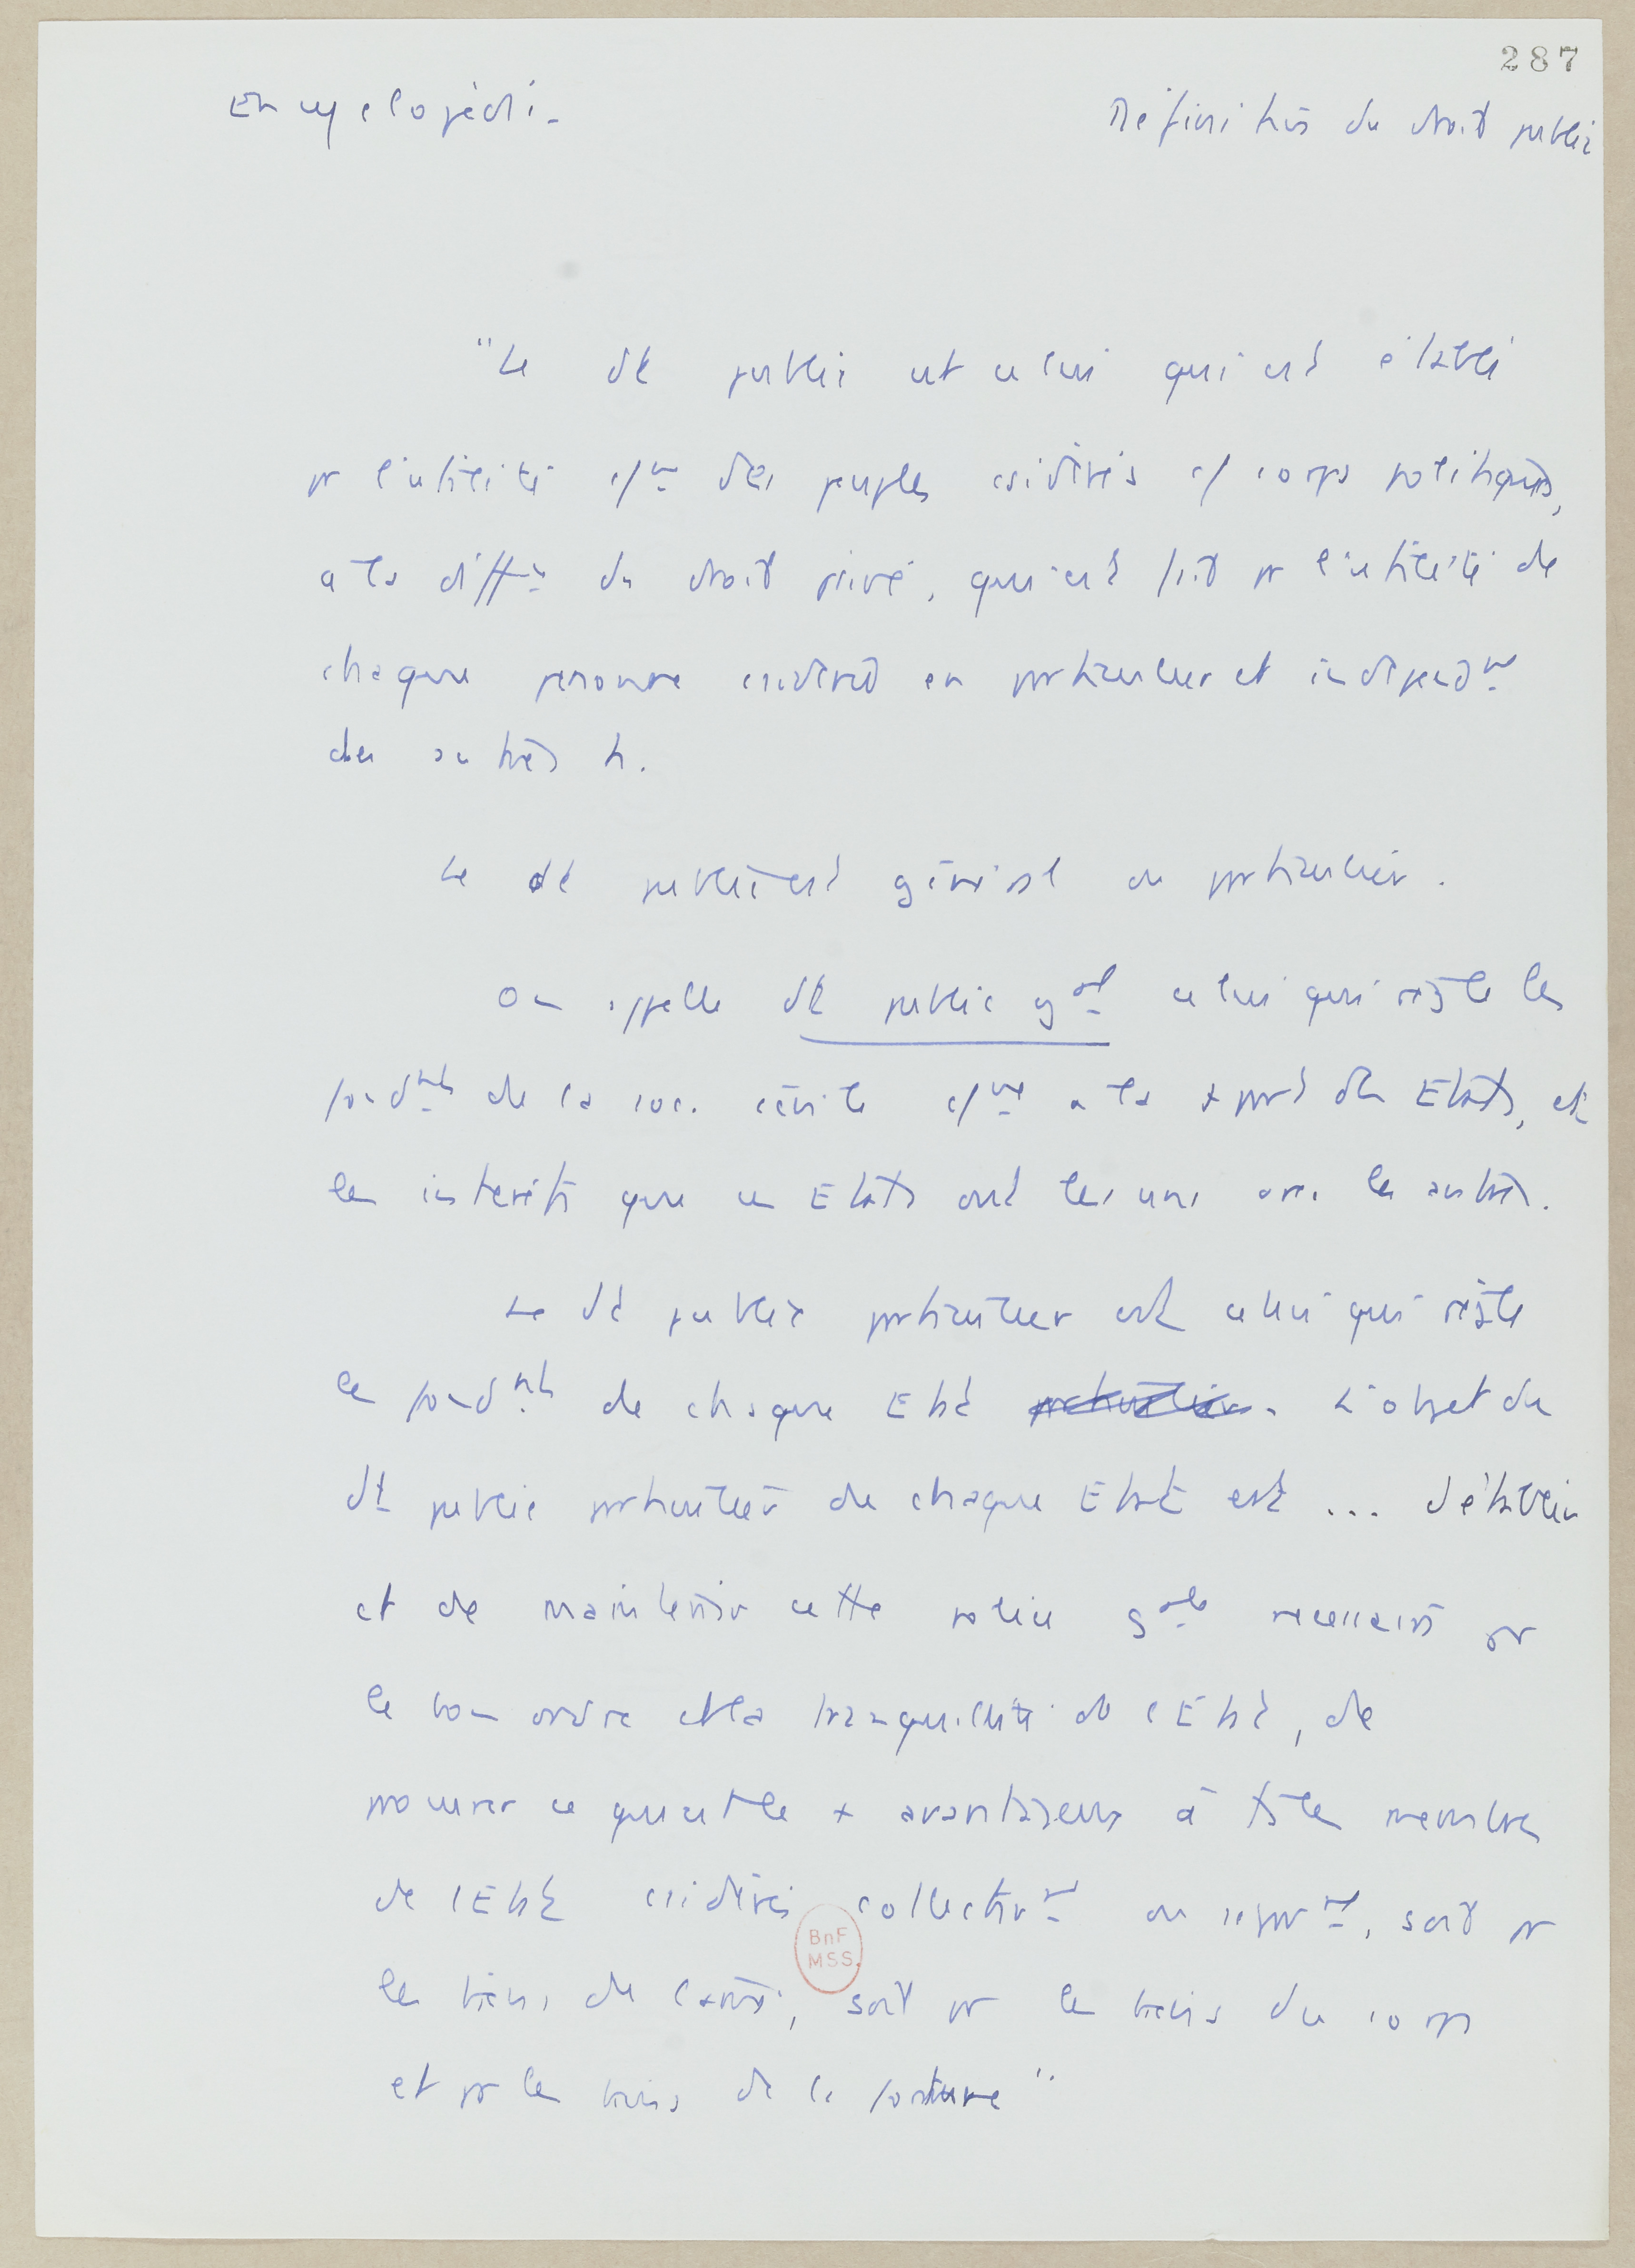 287
Encyclopédie
Définition du droit public
"Le dt public est celui qui est établi
pr l'utilité c/ne des peuples csidérés c/ corps politiques,
a la diffce du droit privé, qui est fait pr l'utilité de
chaque personne csidérée en particulier et indépendt
des autres h.
Le dt public est général ou particulier.
On appelle dt public gal celui qui règle les
fondmts de la soc. civile c/ne a la + part des Etats, et
les intérêts que ces Etats ont les uns avec les autres.
Le dt public particulier est celui qui règle
les fondmts de chaque Etat L'objet du
dt public particulier de chaque Etat est ... d'établir
et de maintenir cette police gale nécessaire pr
le bon ordre et la tranquillité de l'Etat, de
procurer ce qui est le + avantageux à ts les membres
de l'Etat csidérés collectivt ou sépart, soit pr
les biens de l'âme, soit pr les biens du corps
et pr les biens de la fortune".
BnF
MSS.